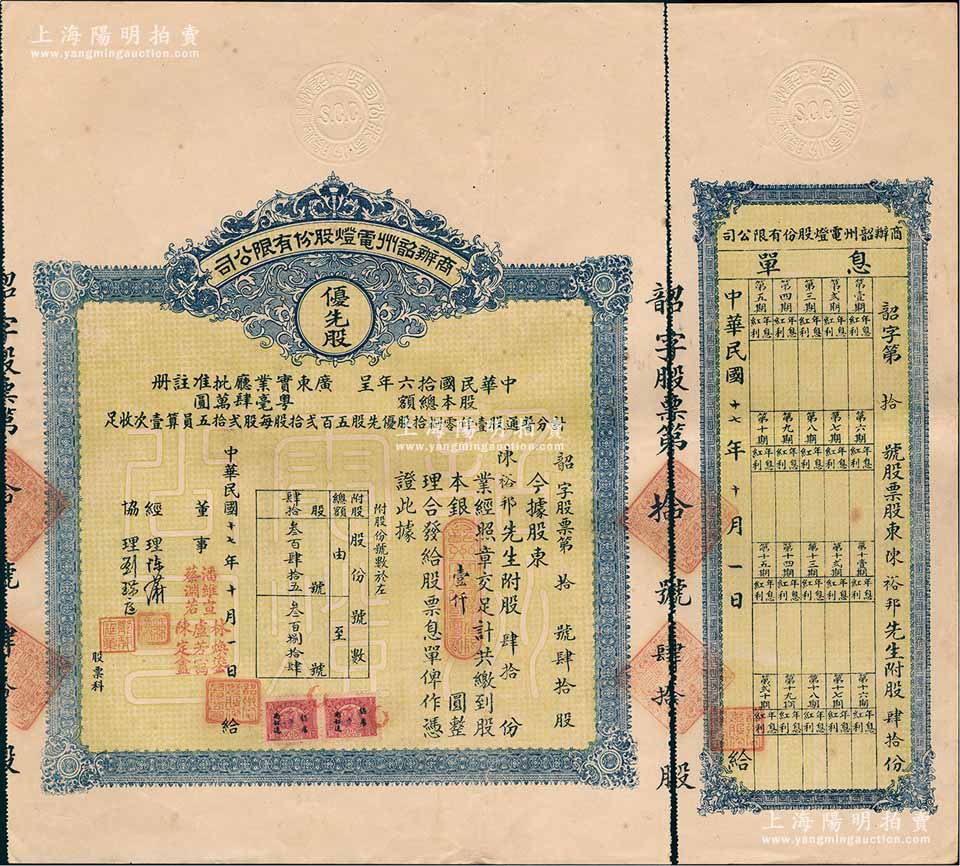 上海陽明拍賣
www.yangmingauction.com
上海陽明拍賣
www.yangmingauction.com
S.C.C.
S.C.C.
商辦韶州電燈股份有限公司
優先股
中華民國拾六年呈
廣東實業廳批准註冊
股本總額
粵毫肆萬圓
計分普通股壹仟零捌拾股優先股五百弍拾股每股弍拾五員算壹次收足
韶字股票第拾號肆拾股
今據股東
陳裕邦先生附股肆拾份
業經照章交足計共繳到股
本銀壹仟圓整
理合發給股票息單俾作憑
證此據
附股份號數於左
附股總額
股份號數
由
至
號
號
股
肆拾
叁百肆拾五
叁百捌拾肆
中華民國十七年十月一日
給
董事
潘維宣
林煥
蔡淵若
盧芳
陳定
經理
協理
股票科
韶字股票第拾號肆拾股
韶字股票第拾號肆拾股
商辦韶州電燈股份有限公司
息單
韶字第拾號股票股東陳裕邦先生附股肆拾份
第壹期
第弍期
第三期
第四期
第五期
年息紅利
年息紅利
年息紅利
年息紅利
年息紅利
第六期
第七期
第八期
第九期
第十期
年息紅利
年息紅利
年息紅利
年息紅利
年息紅利
第十壹期
第十弍期
第十三期
第十四期
第十五期
年息紅利
年息紅利
年息紅利
年息紅利
年息紅利
第十六期
第十七期
第十八期
第十九期
第弍十期
年息紅利
年息紅利
年息紅利
年息紅利
年息紅利
中華民國十七年十月一日
給
上海陽明拍賣
www.yangmingauction.com
上海陽明拍賣
www.yangmingauction.com